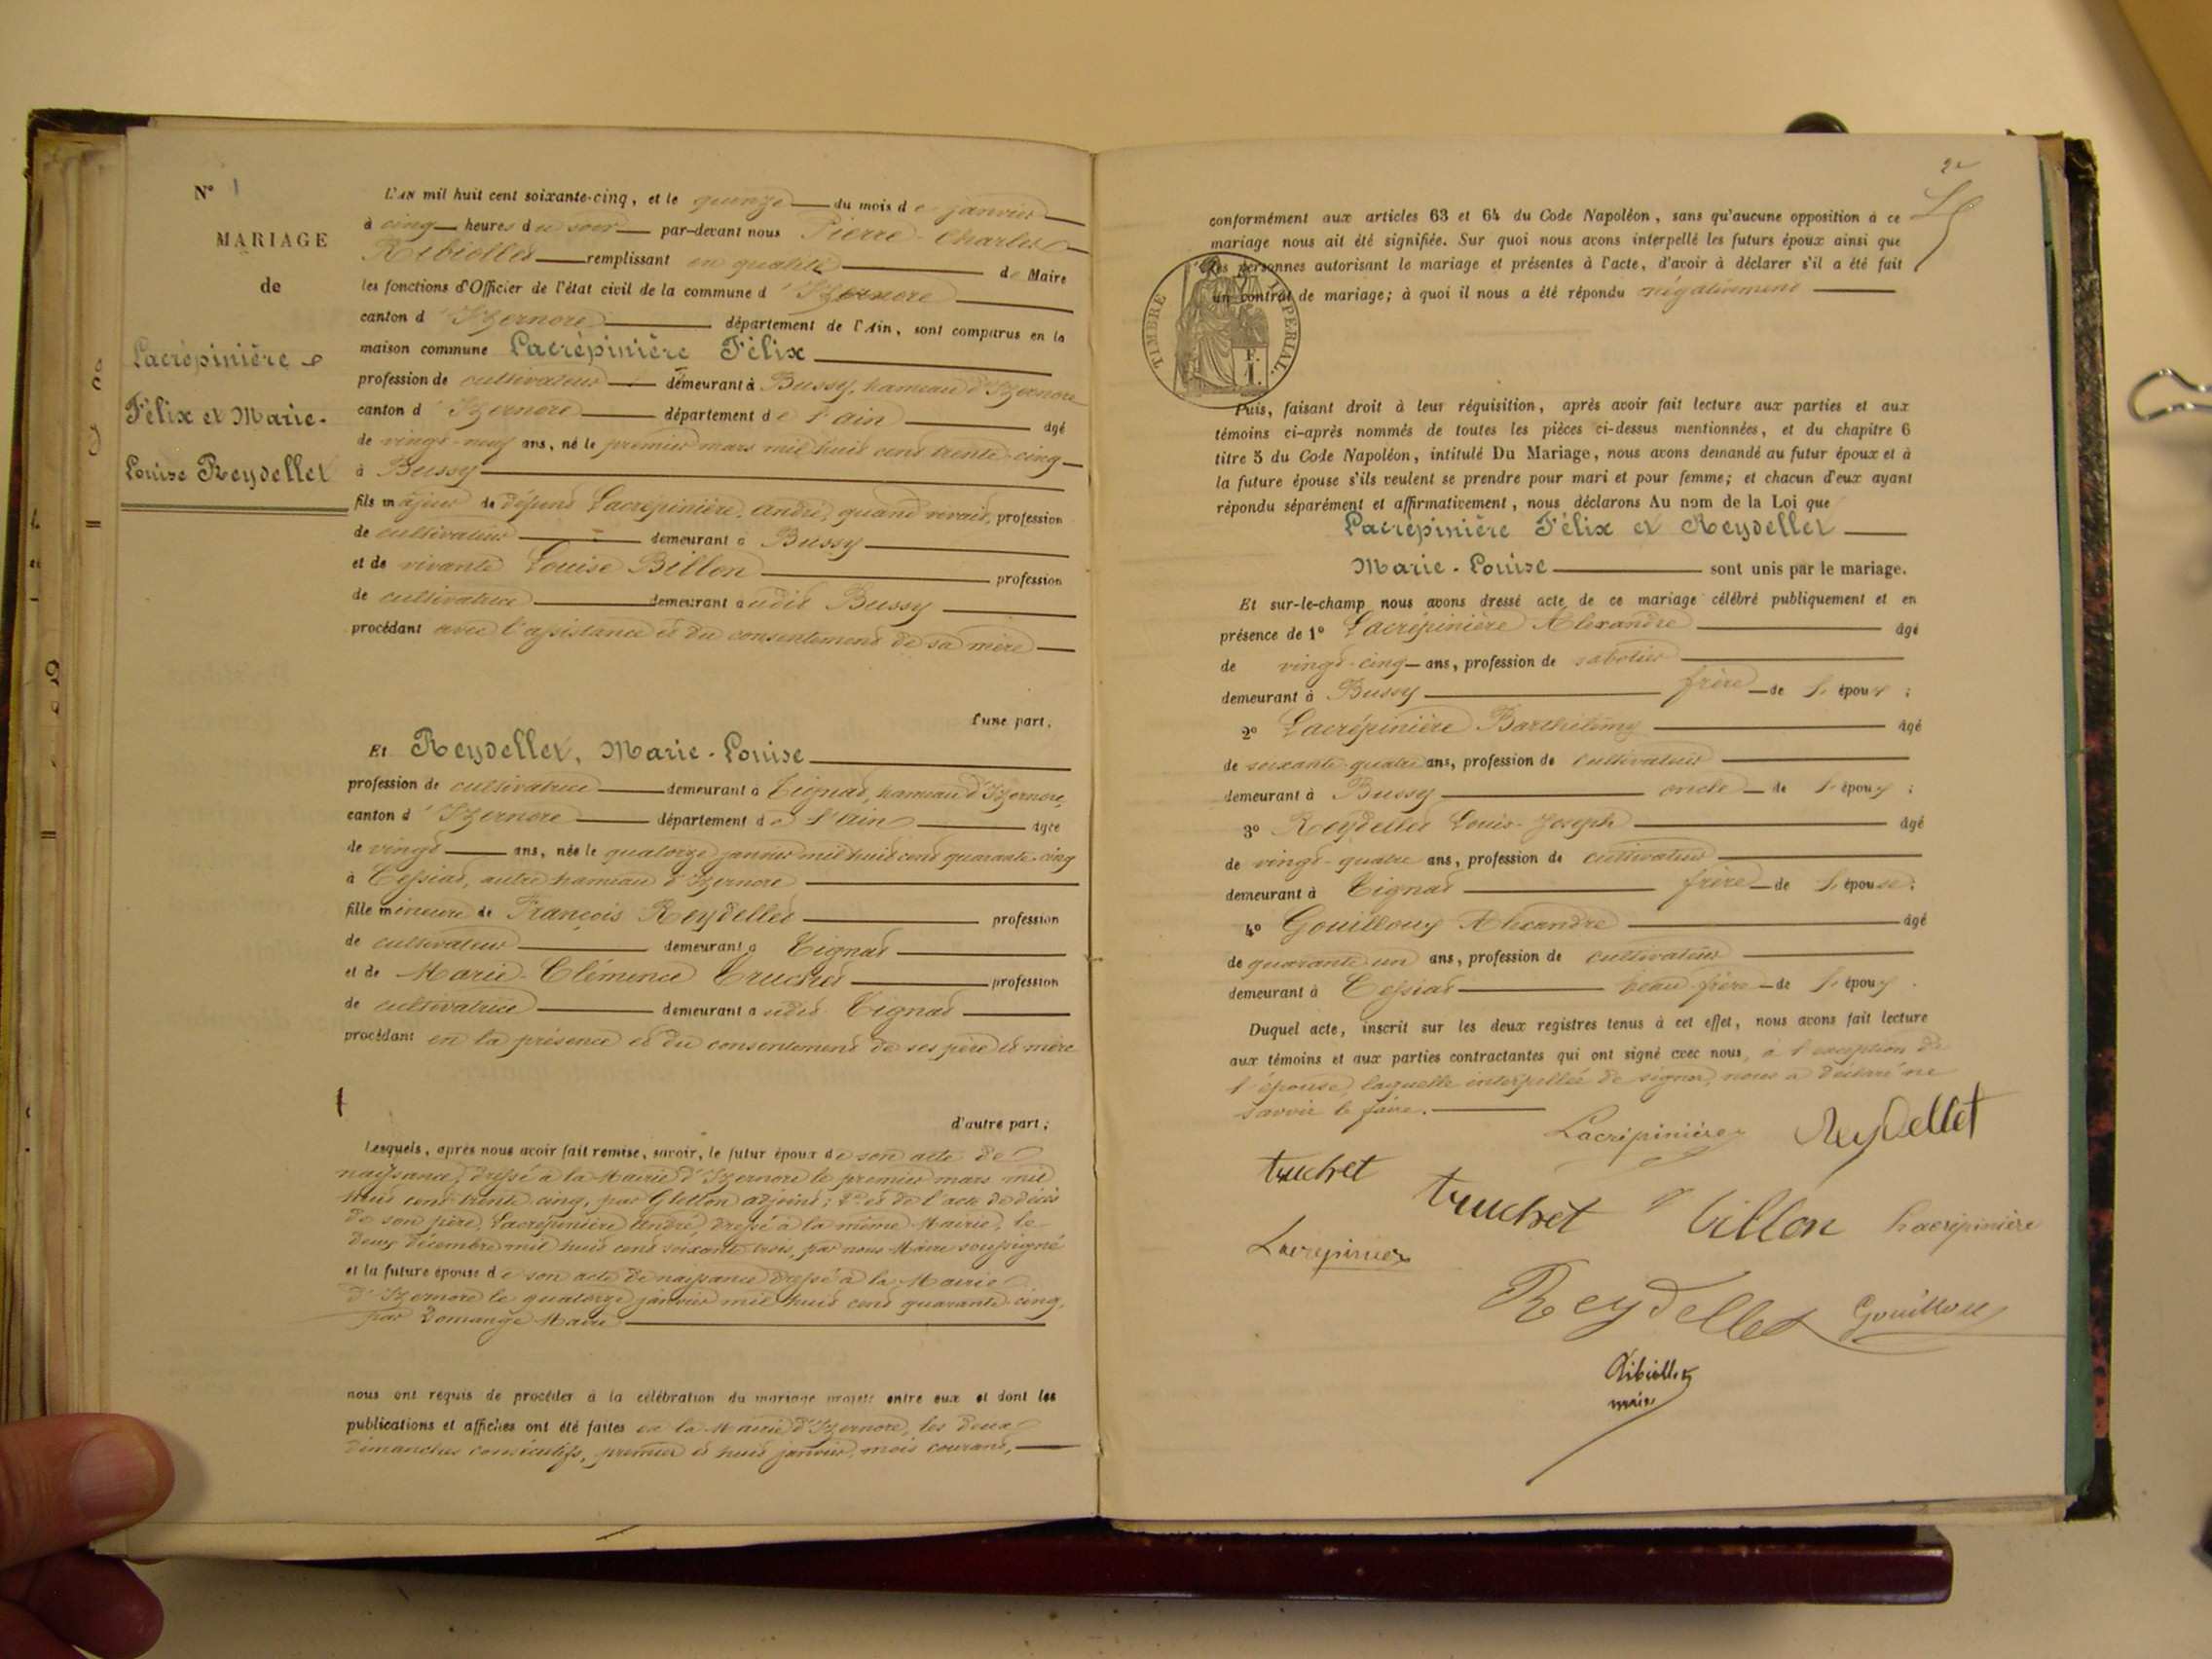 N° 1
MARIAGE
de
Lacrépinière
Félix et Marie-
Louise Reydellet
L'AN mil huit cent soixante-cinq, et le quinze du mois de janvier
à cinq heures du soir par-devant nous Pierre-Charles
Ribiollet remplissant en qualité de Maire
les fonctions d'Officier de l'état civil de la commune d'Izernore
canton d'Izernore département de l'Ain, sont comparus en la
maison commune Lacrépinière Félix
profession de cultivateur demeurant à Bussy, hameau d'Izernore
canton d'Izernore département de l'ain âgé
de vingt-neuf ans, né le premier mars mil huit cent trente-cinq
à Bussy
fils majeur de défunt Lacrépinière, André, quand vivait, profession
de cultivateur demeurant à Bussy
et de vivante Louise Billon profession
de cultivatrice demeurant audit Bussy
procédant avec l'assistance et du consentement de sa mère
d'une part.
Et Reydellet, Marie-Louise
profession de cultivatrice demeurant à Tignat, hameau d'Izernore,
canton d'Izernore département de l'Ain âgée
de vingt ans, née le quatorze janvier mil huit cent quarante-cinq
à Cessiat, autre hameau d'Izernore
fille mineure de François Reydellet profession
de cultivateur demeurant à Tignat
et de Marie-Clémence Truchet profession
de cultivatrice demeurant audit Tignat
procédant en la présence et du consentement de ses père et mère
d'autre part;
Lesquels, après nous avoir fait remise, savoir, le futur époux de son acte de
naissance, dressé à la Mairie d'Izernore le premier mars mil
huit cent trente-cinq, par Gletton adjoint; 2° et de l'acte de décès
de son père, Lacrépinière André, dressé à la même Mairie, le
deux décembre mil huit cent soixante trois, par nous Maire soussigné
et la future épouse de son acte de naissance dressé à la Mairie
d'Izernore le quatorze janvier mil huit cent quarante-cinq,
par Domange Maire
nous ont requis de procéder à la célébration du mariage projeté entre eux et dont les
publications et affiches ont été faites en la Mairie d'Izernore, les deux
dimanches consécutifs, premier et huit janvier, mois courant,
2e
conformément aux articles 63 et 64 du Code Napoléon, sans qu'aucune opposition à ce
mariage nous ait été signifiée. Sur quoi nous avons interpellé les futurs époux ainsi que
les personnes autorisant le mariage et présentes à l'acte, d'avoir à déclarer s'il a été fait
un contrat de mariage; à quoi il nous a été répondu négativement
TIMBRE IMPERIAL.
F.
1.
Puis, faisant droit à leur réquisition, après avoir fait lecture aux parties et aux
témoins ci-après nommés de toutes les pièces ci-dessus mentionnées, et du chapitre 6
titre 5 du Code Napoléon, intitulé Du Mariage, nous avons demandé au futur époux et à
la future épouse s'ils veulent se prendre pour mari et pour femme; et chacun d'eux ayant
répondu séparément et affirmativement, nous déclarons Au nom de la Loi que
Lacrépinière Félix et Reydellet
Marie-Louise sont unis par le mariage.
Et sur-le-champ nous avons dressé acte de ce mariage célébré publiquement et en
présence de 1° Lacrépinière Alexandre âgé
de vingt-cinq ans, profession de sabotier
demeurant à Bussy frère de l'époux;
2° Lacrépinière Barthélemy âgé
de soixante-quatre ans, profession de cultivateur
demeurant à Bussy oncle de l'époux;
3° Reydellet Louis-Joseph âgé
de vingt-quatre ans, profession de cultivateur
demeurant à Tignat frère de l'épouse;
4° Gouilloux Alexandre âgé
de quarante-un ans, profession de cultivateur
demeurant à Cessiat beau-frère de l'époux.
Duquel acte, inscrit sur les deux registres tenus à cet effet, nous avons fait lecture
aux témoins et aux parties contractantes qui ont signé avec nous, à l'exception de
l'épouse, laquelle interpellée de signer, nous a déclaré ne
savoir le faire.
Lacrépinière Reydellet
truchet
truchet billon Lacrépinière
Lacrepinier
Reydellet Gouilloux
Ribiollet
maire